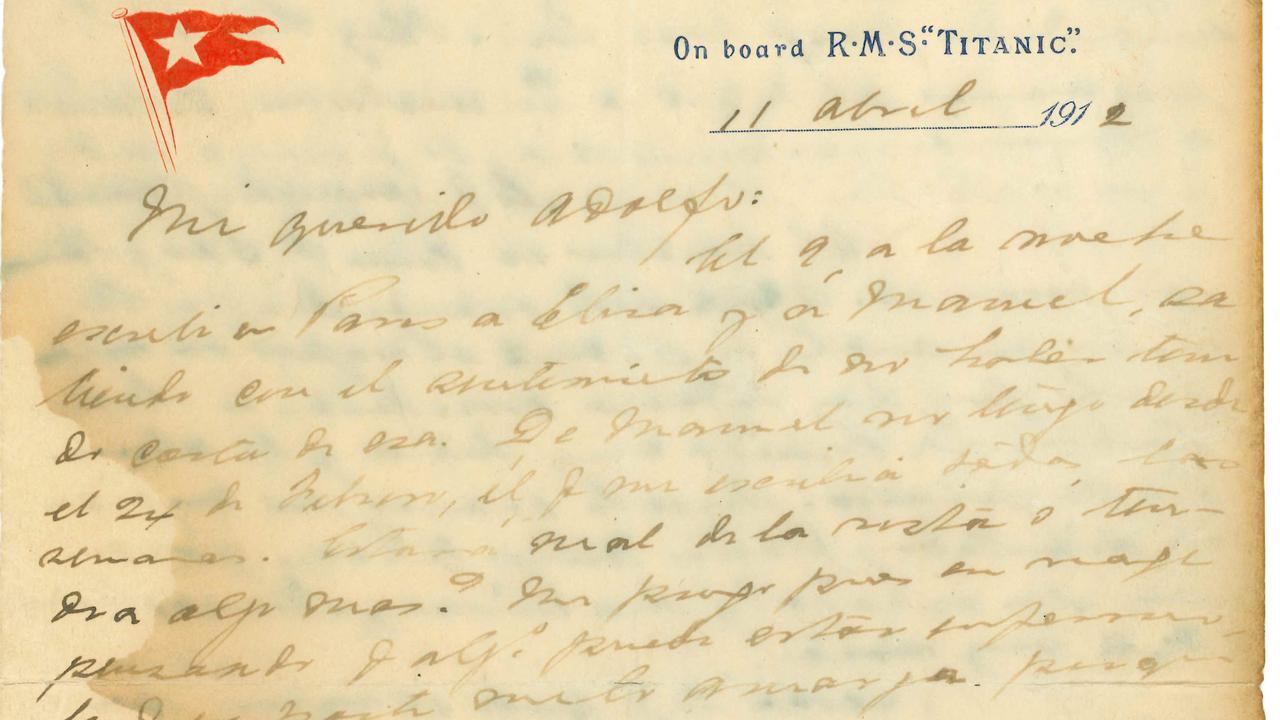 On board R·M·S. "TITANIC".
11 abril 1912
Mi querido Adolfo:
El 9, a la noche
escribi en Paris a Elisa y á Manuel, sa
liendo con el sentimiento de no haber teni
do carta de esa. De Manuel no tengo desde
el 24 de Febrero, él q me escribia todas las
semanas. Estará mal de la vista o ten-
dra algo mas? Me pongo pues en viaje
pensando q algo puede estar enfermo,
me amarga porque